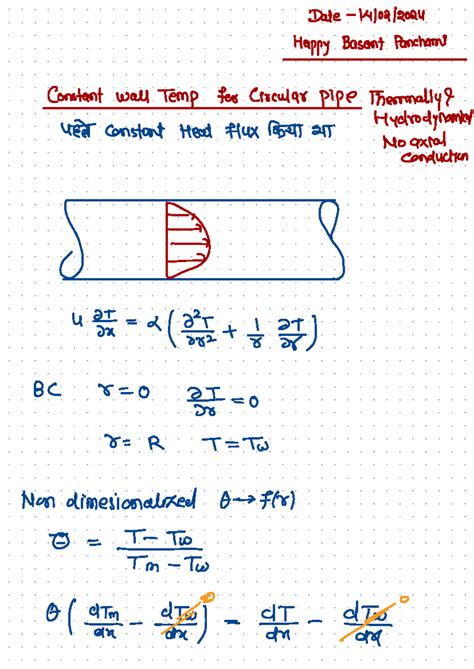 Date - 14/02/2024
Happy Basant Panchami
Constant wall Temp for Circular pipe
Thermally &
Hydrodynamically
No axial
conduction
पहले Constant Head flux किया था
u ∂T/∂x = α ( ∂²T/∂r² + 1/r ∂T/∂r )
BC r = 0 ∂T/∂r = 0
r = R T = Tw
Non dimesionalized θ → f(r)
θ = (T - Tw)/(Tm - Tw)
θ ( dTm/dx - dTw/dx 0 ) = dT/dx - dTw/dx 0